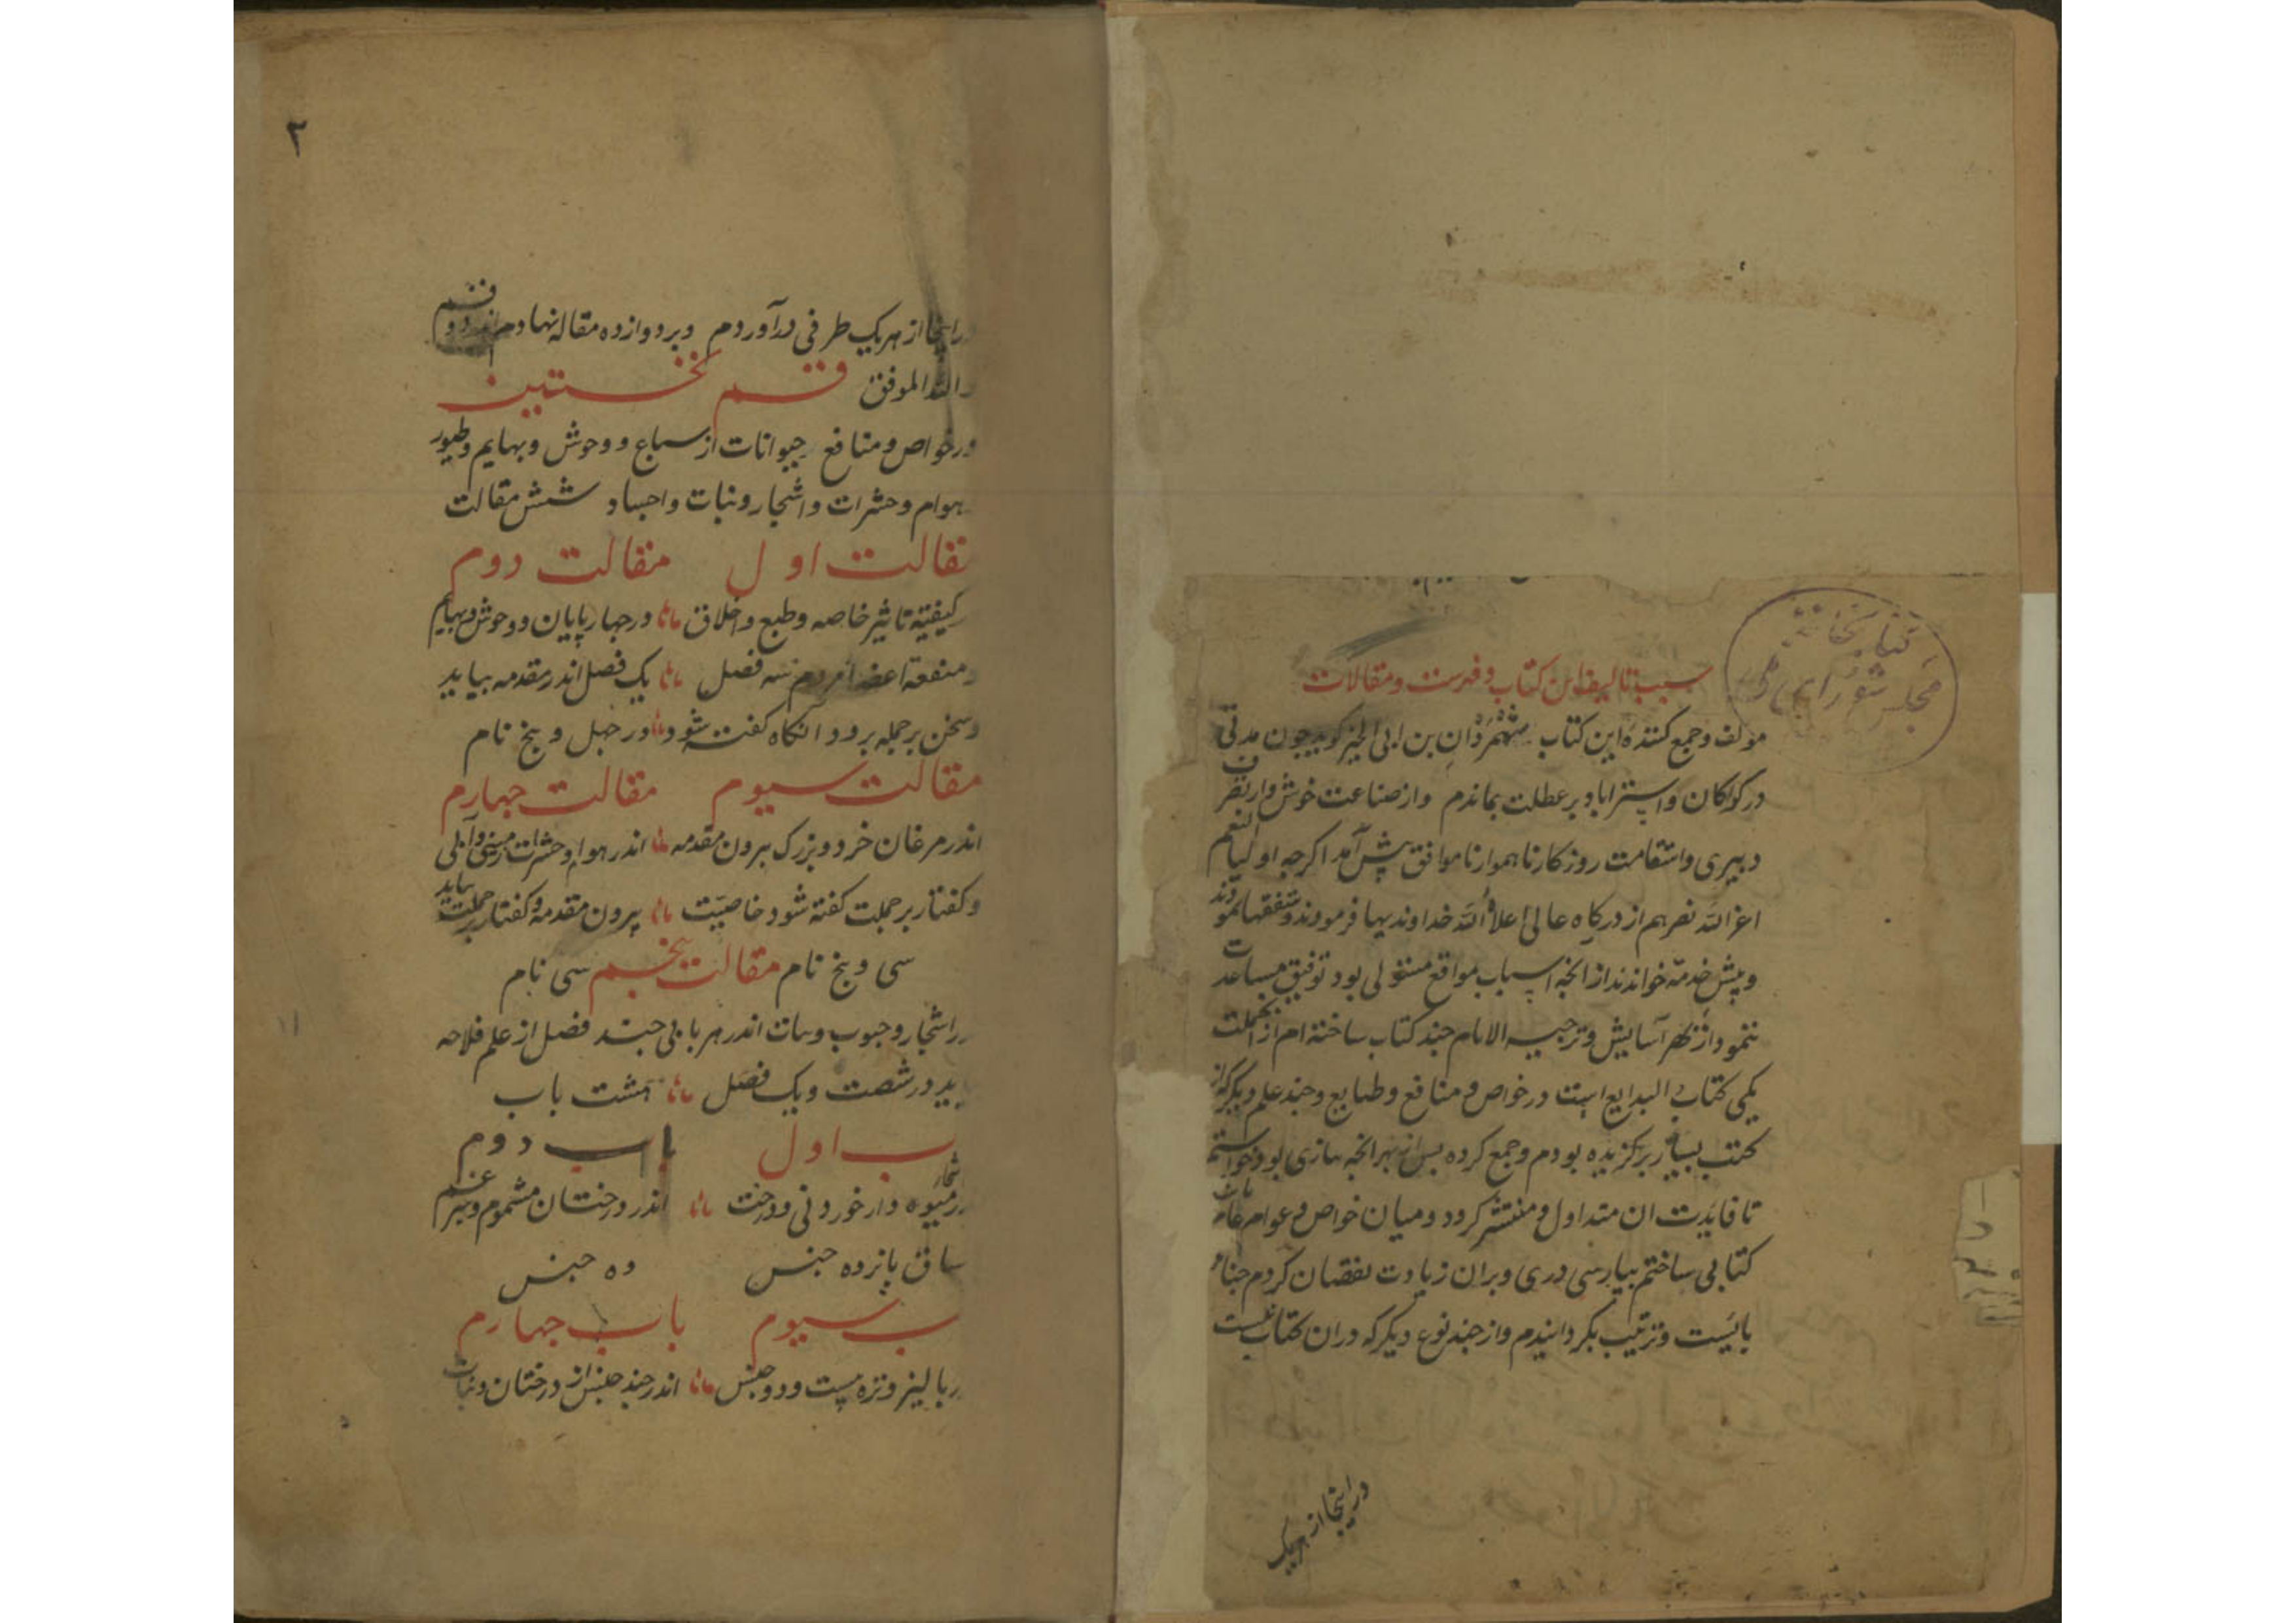 کتابخانه
مجلس شورای ملی
سبب تالیف این کتاب و فهرست و مقالات
مولف و جمع کننده این کتاب شهمردان بن ابی الخیر کوید چون مدتی
در کرکان و استراباد بر عطلت بماندم و از صناعت خوش و از تصرف
دبیری و استقامت روزکار ناهموار ناموافق پیش آمد اکرچه اولیاء النعم
اعز الله نصرهم از درکاه عالی اعلاه الله خداوندیها فرمودند و شفقتها نمودند
و پیش خدمة خواندند از انجه اسباب مواقع مستولی بود توفیق مساعدت
ننمود از بهر آسایش و ترجیه الایام چند کتاب ساخته ام از انجملت
یکی کتاب البدایع است در خواص و منافع و طبایع و چند علم دیکر که از
کتب بسیار برکزیده بودم و جمع کرده پس از بهر انجه بتازی بود خواستم
تا فایدت ان متداول و منتشر کردد و میان خواص و عوام عام باشد
کتابی ساختم بپارسی دری و بران زیادت نقصان کردم چنانکه
بایست و ترتیب بکردانیدم و از چند نوع دیکر که دران کتاب نیست
در اینجا از هریک
۲
در اینجا از هریک طرفی درآوردم و بر دوازده مقاله نهادم اندر دو قسم
و الله الموفق قسم نخستین
در خواص و منافع حیوانات از سباع و وحوش و بهایم و طیور
هوام و حشرات و اشجار و نبات و اجساد شش مقالت
مقالت اول مقالت دوم
کیفیة تاثیر خاصه و طبع و اخلاق در چهارپایان و وحوش و بهایم
و منفعة اعضاء مردم سه فصل یک فصل اندر مقدمه بیاید
و سخن بر جمله برود و آنکاه کفته شود در چهل و پنج نام
مقالت سیوم مقالت چهارم
اندر مرغان خرد و بزرک بیرون مقدمه اندر هوام و حشرات زمینی و آبی
و کفتار بر جملت کفته شود خاصیت بیرون مقدمه و کفتار بر جملت بیاید
سی و پنج نام مقالت پنجم سی نام
در اشجار و حبوب و نبات اندر هر بابی چند فصل از علم فلاحه
یید در شصت و یک فصل هشت باب
باب اول باب دوم
در میوه دار خوردنی و درخت اندر درختان مشموم و سپرغم
ساق پانزده جنس ده جنس
باب سیوم باب چهارم
در پالیز و تره بیست و دو جنس اندر چند جنس از درختان و نبات